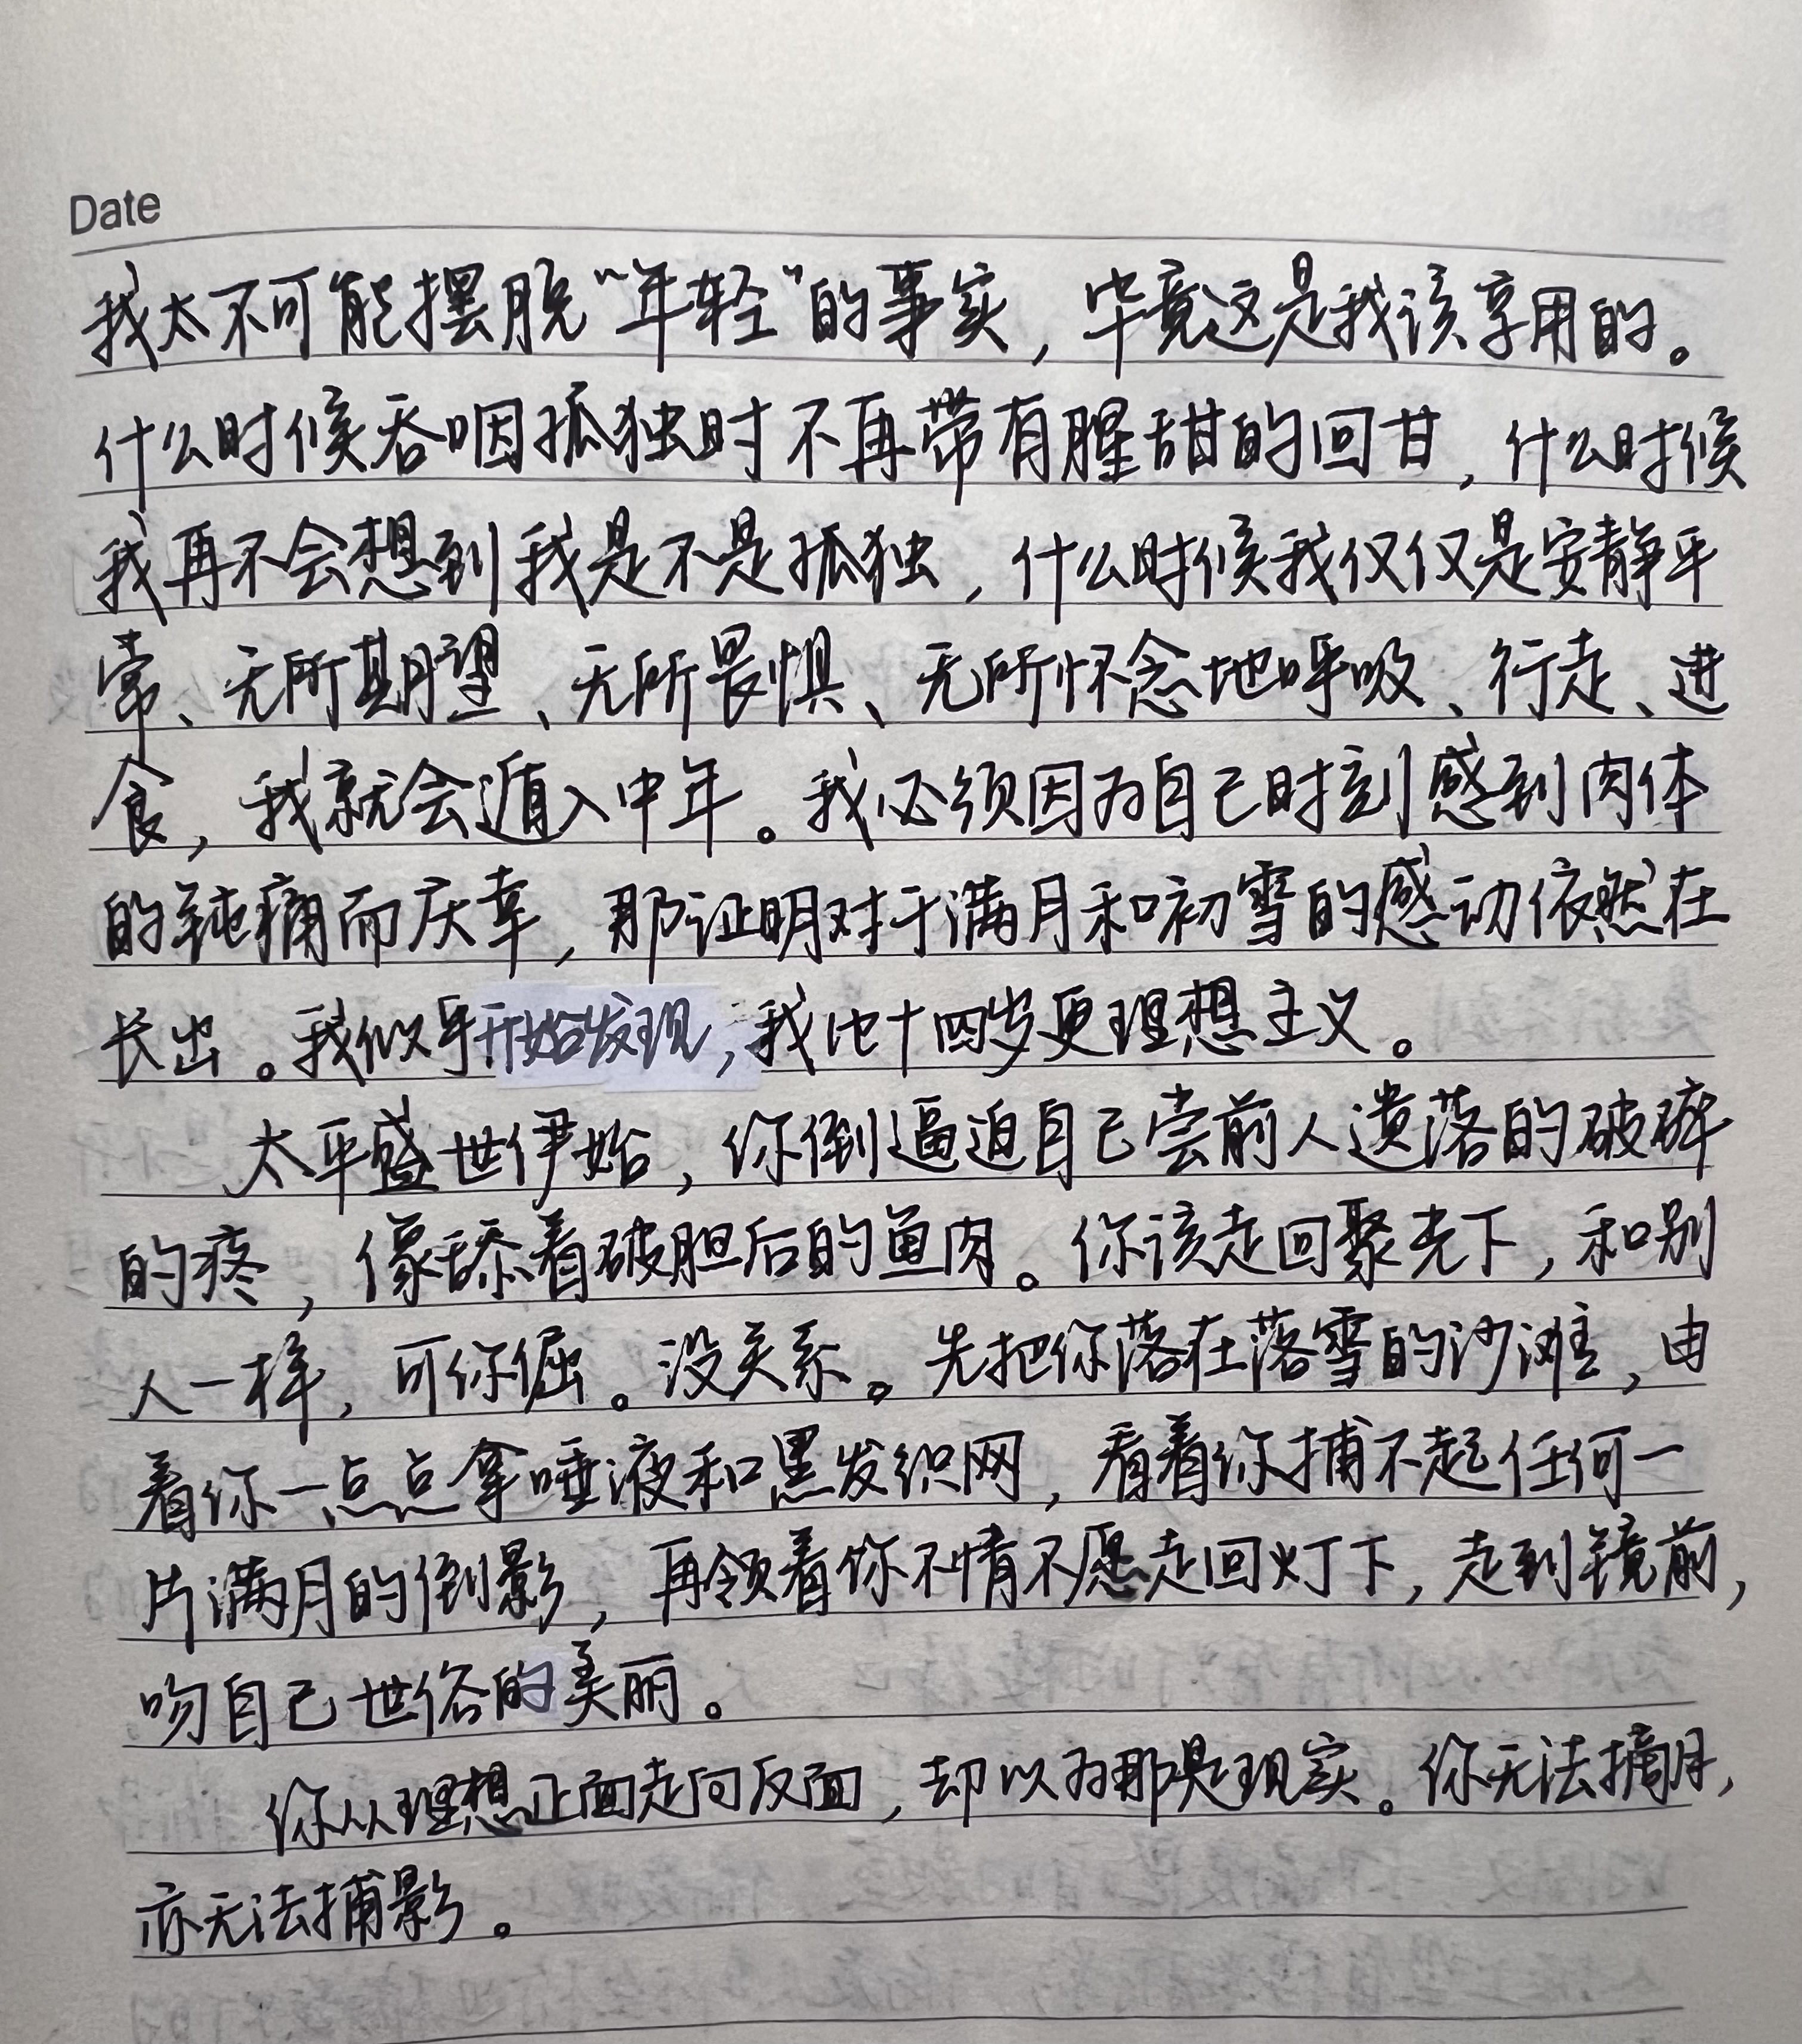 Date
我太不可能摆脱“年轻”的事实，毕竟这是我该享用的。
什么时候吞咽孤独时不再带有腥甜的回甘，什么时候
我再不会想到我是不是孤独，什么时候我仅仅是安静平
常、无所期望、无所畏惧、无所怀念地呼吸、行走、进
食，我就会遁入中年。我必须因为自己时刻感到肉体
的钝痛而庆幸，那证明对于满月和初雪的感动依然在
长出。我似乎开始发现，我比十四岁更理想主义。
太平盛世伊始，你倒逼迫自己尝前人遗落的破碎
的疼，像舔着破胆后的鱼肉。你该走回聚光下，和别
人一样，可你倔。没关系。先把你落在落雪的沙滩，由
着你一点点拿唾液和黑发织网，看着你捕不起任何一
片满月的倒影，再领着你不情不愿走回灯下，走到镜前，
吻自己世俗的美丽。
你从理想正面走向反面，却以为那是现实。你无法摘月，
亦无法捕影。